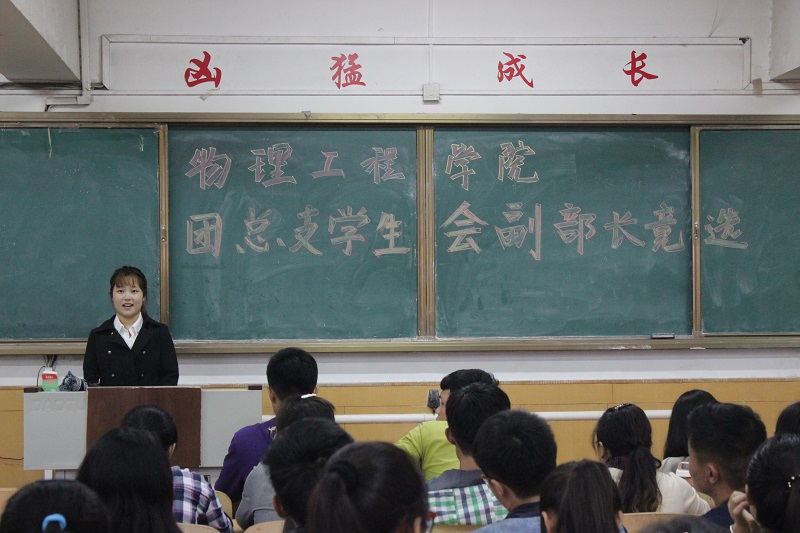 凶猛成长
物理工程学院
团总支学生会副部长竞选